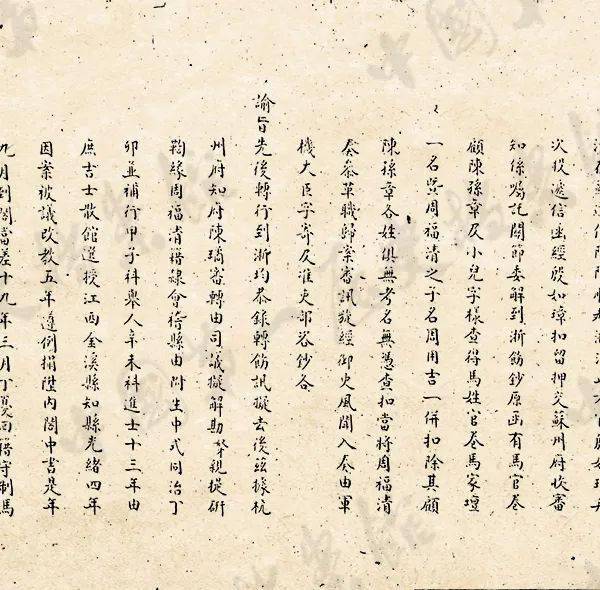 次投遞信函經殷如璋扣留押交蘇州府收審
知係囑託關節委解到浙飭鈔原函有馬官卷
顧陳孫章及小兒字樣查得馬姓官卷馬家壇
一名與周福清之子名周用吉一併扣除其顧
陳孫章各姓俱無考名無憑查扣當將周福清
奏參革職歸案審訊旋經御史風聞入奏由軍
機大臣字寄及准吏部咨鈔各
諭旨先後轉行到浙均恭錄轉飭訊擬去後茲據杭
州府知府陳璚審轉由司議擬解勘等親提研
鞫緣周福清籍隸會稽縣由附生中式同治丁
卯並補行甲子科舉人辛未科進士十三年由
庶吉士散館選授江西金溪縣知縣光緒四年
因案被議改教五年遵例捐陞內閣中書是年
九月到閣當差十九年三月丁憂回籍守制馬